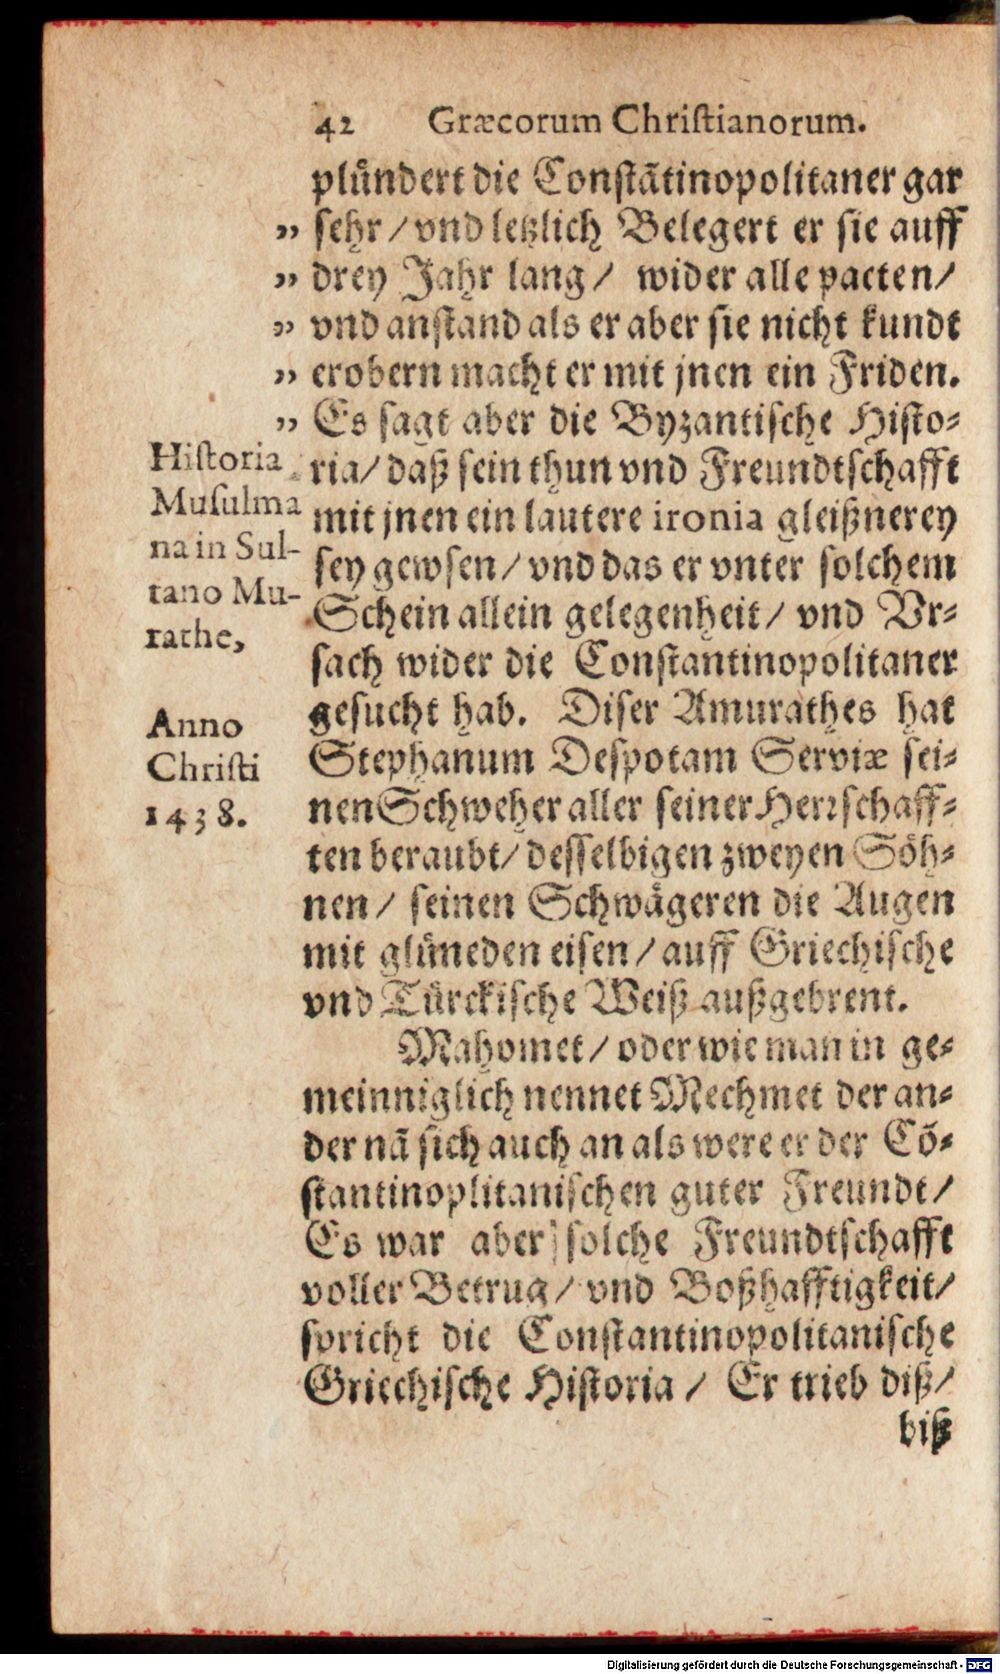 42 Græcorum Chriſtianorum.
plündert die Conſtãtinopolitaner gar
„ ſehr / vnd letzlich Belegert er ſie auff
„ drey Jahr lang / wider alle pacten /
„ vnd anſtand als er aber ſie nicht kundt
„ erobern macht er mit jnen ein Friden.
„ Es ſagt aber die Byzantiſche Hiſto⸗
ria / daß ſein thun vnd Freundtſchafft
mit jnen ein lautere ironia gleißnerey
ſey gewſen / vnd das er vnter ſolchem
Schein allein gelegenheit / vnd Vr⸗
ſach wider die Conſtantinopolitaner
geſucht hab. Diſer Amurathes hat
Stephanum Deſpotam Serviæ ſei⸗
nen Schweher aller ſeiner Herrſchaff⸗
ten beraubt / deſſelbigen zweyen Söh⸗
nen / ſeinen Schwägeren die Augen
mit glüneden eiſen / auff Griechiſche
vnd Türckiſche Weiß außgebrent.
Hiſtoria
Muſulma
na in Sul-
tano Mu-
rathe,
Anno
Chriſti
1438.
Mahomet / oder wie man in ge⸗
meinniglich nennet Mechmet der an⸗
der nã ſich auch an als were er der Cõ⸗
ſtantinoplitaniſchen guter Freundt /
Es war aber ſolche Freundtſchafft
voller Betrug / vnd Boßhafftigkeit /
ſpricht die Conſtantinopolitaniſche
Griechiſche Hiſtoria / Er trieb diß /
biß
Digitalisierung gefördert durch die Deutsche Forschungsgemeinschaft - DFG